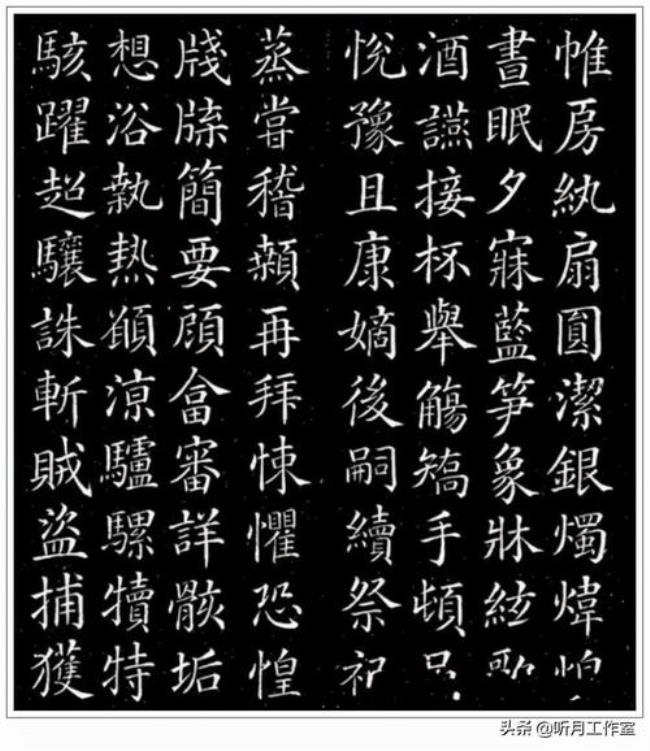 帷房紈扇圓潔銀燭煒
晝眠夕寐藍笋象牀絃
酒讌接杯舉觴矯手頓
悅豫且康嫡後嗣續祭祀
蒸嘗稽顙再拜悚懼恐惶
牋牒簡要顧畣審詳骸垢
想浴執熱願涼驢騾犢特
駭躍超驤誅斬賊盜捕獲
头条 @听月工作室